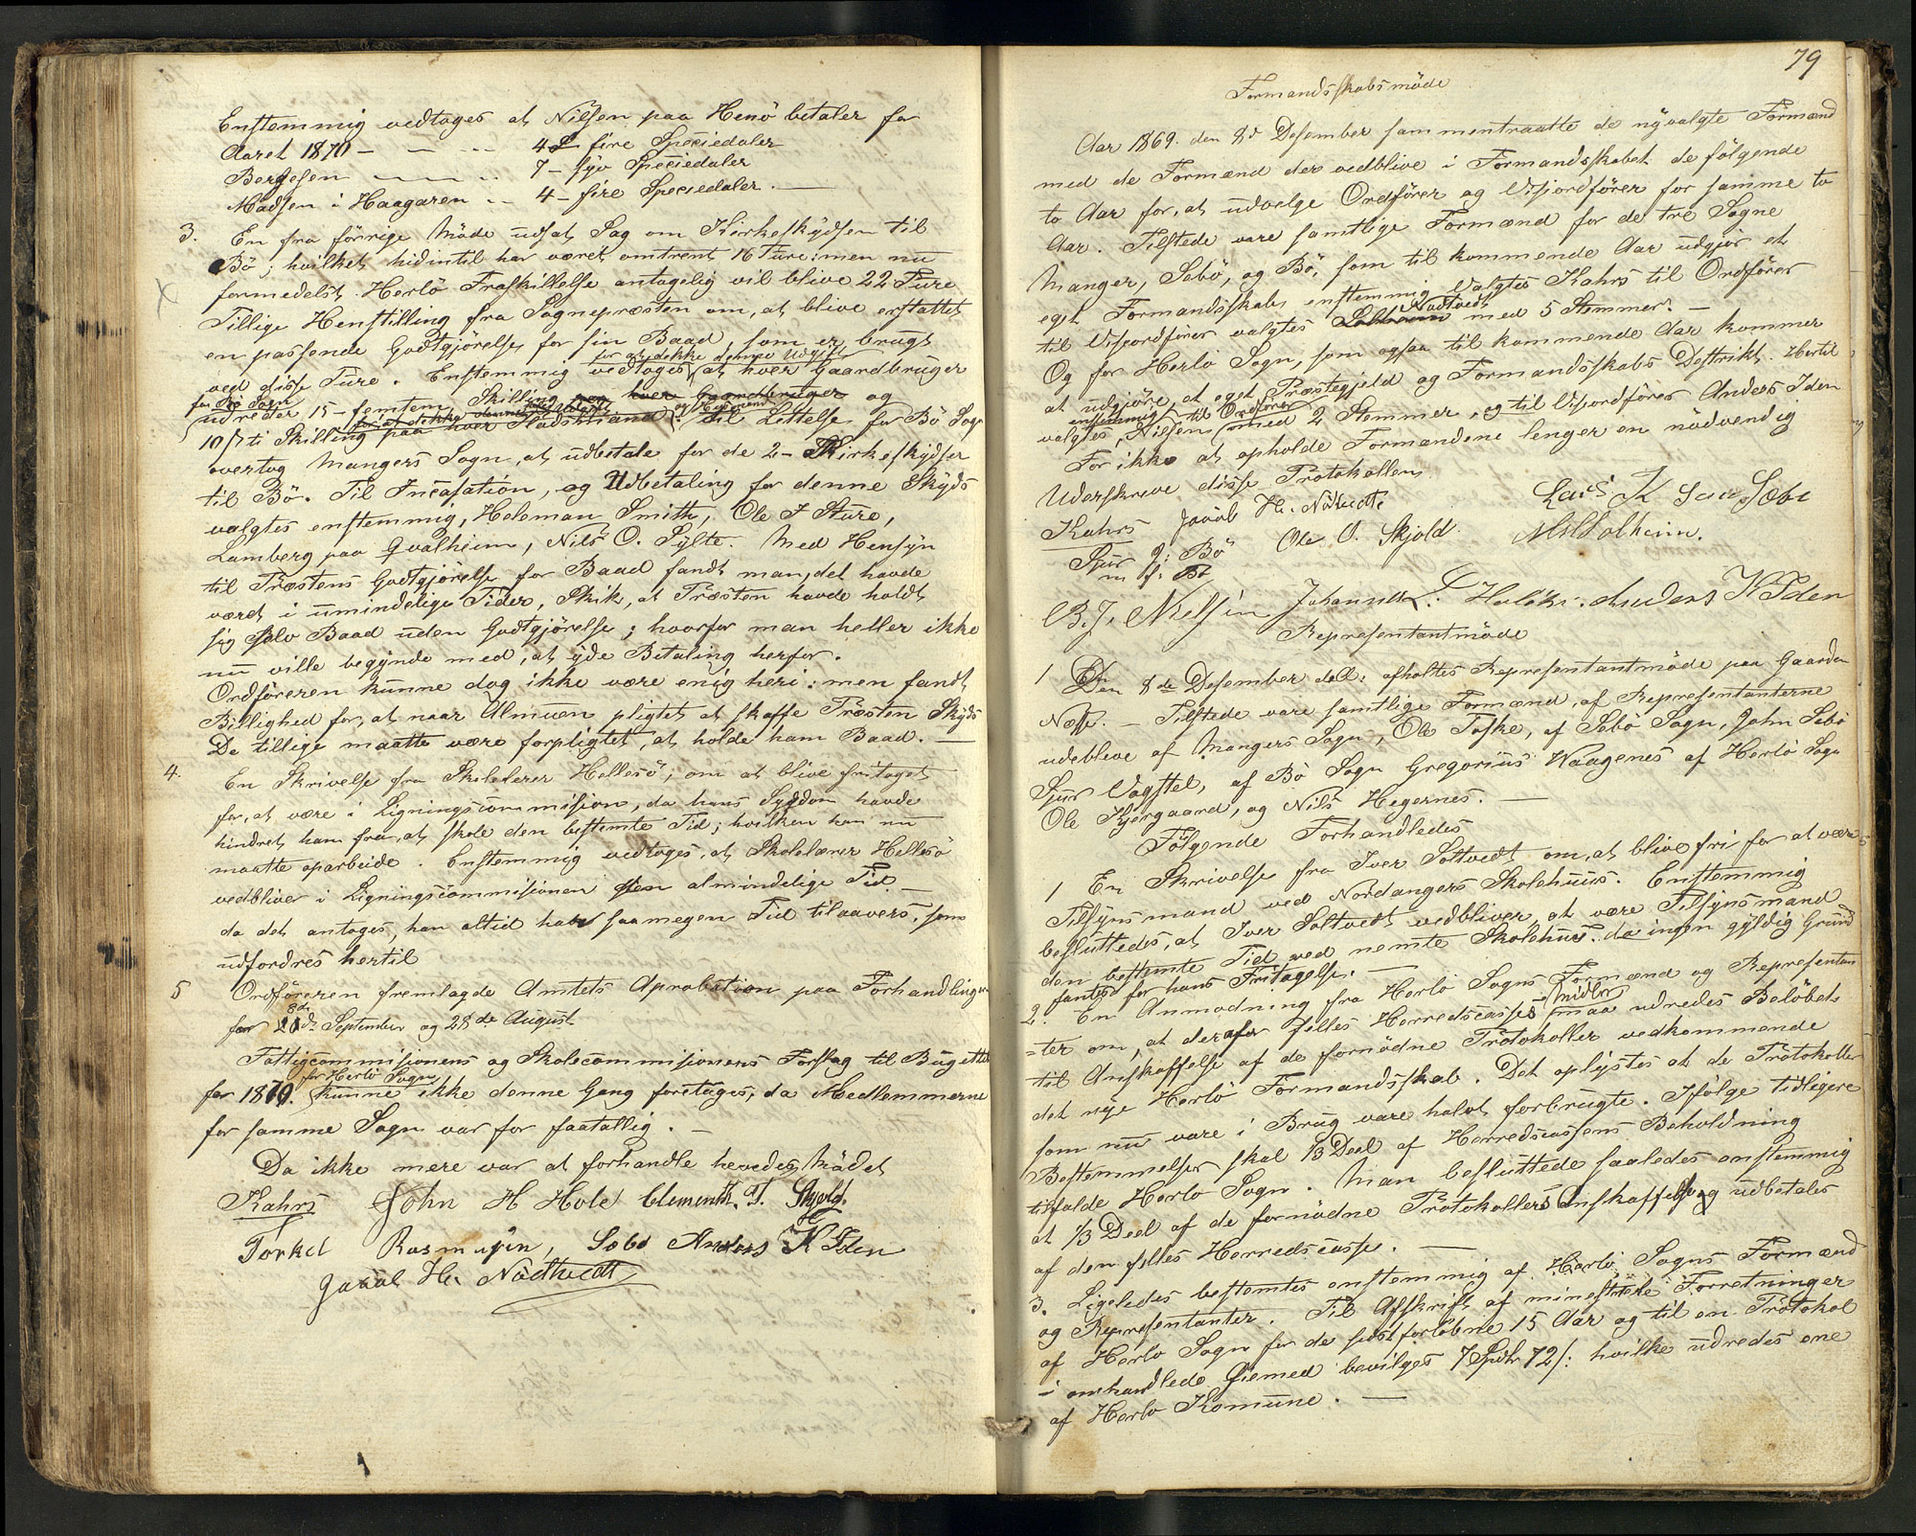 Enstemmig vedtoges at Nilsen paa Henö betaler for
Aaret 1870 — — — 4 fire Speciedaler
Bergesen — — — 7 - syv Speciedaler
Madsen i Haagaren — 4 - fire Speciedaler. —
3. En fra förrige Möde udsat Sag om Kirkeskydsen til
Bö; hvilket hidintil har været omtrent 16 Ture: men nu
formedelst Herlö Fraskillelse antagelig vil blive 22 Ture
Tillige Henstilling fra Sognepræsten om, at blive erstattet
en passende Godtgjörelse for sin Baad, som er brugt
for at dekke denne Udgift
ved disse Ture. Enstemmig vedtoges at hver Gaardbruger
for Bö Sogn
udreder 15 - femten Skilling og hver Gaardbruger og
10/ ti Skilling paa hver Stdsmand. Til Lettelse for Bö Sogn
overtog Mangers Sogn, at udbetale for de 2 - Kirkeskydser
til Bö. Til Incasation, og Udbetaling for denne Skyds
valgtes enstemmig, Heleman Smith, Ole J Sture,
Lamberg paa Gvalheim, Nils O. Sylte. Med Hensyn
til Præstens Godtgjörelse for Baad fandt man, det havde
været i umindelige Tider, Skik, at Præsten havde holdt
sig selv Baad uden Godtgjörelse; hvorfor man heller ikke
nu ville begynde med, at yde Betaling herfor.
Ordföreren kunne dog ikke være enig heri: men fandt
Billighed for, at naar Almuen pligtet at skaffe Præsten Skyds
De tillige maatte være forpligtet, at holde ham Baad. —
4. En Skrivelse fra Skolelerer Hellesö; om at blive fritaget
for, at være i Ligningscommision, da hans Sygdom havde
hindret ham fra, at skole den bestemte Tid; hvilken han nu
maatte oparbeide. Enstemmig vedtoges, at Skolelærer Hellesö
vedbliver i Ligningscommisionen den almindelige Tid —
da det antages, han altid har saamegen Tid tilaavers, som
udfordres hertil
5 Ordföreren fremlagde Amtets Aprobation paa Forhandlinger
8de
for September og 28de August
Fattigcommisionens og Skolecommisionens Forslag til Bugette
for Herlö Sogn
for 1870. kunne ikke denne Gang foretages, da Medlemmerne
for samme Sogn var for faatallig. —
Da ikke mere var at forhandle hevedes Mödet
Kahrs John H Hole Clement T. Skjold
Torkel Rasmusen, Sebö Anders K Iden
Jacob H. Nödtvedt
79
Formandsskabsmöde
Aar 1869. den 8d Desember sammentraatte de nyvalgte Formænd
med de Formænd der vedblive i Formandsskabet de fölgende
to Aar for, at udvelge Ordförer og Visordförer for samme to
Aar. Tilstede vare samtlige Formænd for de tre Sogne
Manger, Sebö, og Bö, som til kommende Aar udgjör et
eget Formandsskab, enstemmig valgtes Kahrs til Ordförer
Nodtvedt
til Visordförer valgtes Solheim med 5 Stemmer. —
Og for Herlö Sogn, som ogsaa til kommende Aar kommer
at udgjöre et eget Præstegjeld og Formandsskabs Destrikt. Hertil
enstemmig til Ordförer
valgtes Nilsen med 2 Stemmer, og til Visordförer Anders Iden
For ikke at opholde Formændene lenger en nödvendig
Uderskreve disse Protokollen
Kahrs Jacob H. Nödtvedt Lars K Sebö
Sjur J: Bö Ole O. Skjold M Solheim.
m f: Bö
B. J. Nielsen Johannes Anders K Iden
Representantmöde
1 Den 8de Desember d.A: afholtes Representantmöde paa Gaarden
Næsse. — Tilstede vare samtlige Formænd, af Representanterne
udebleve af Mangers Sogn, Ole Toske, af Sebö Sogn, John Sebö
Sjur Vagstel, af Bö Sogn Gregorius Waagenes af Herlö Sogn
Ole Kjergaard, og Nils Hegernes. —
Fölgende Forhandledes
1 En Skrivelse fra Iver Soltvedt om, at blive fri for at være
Tilsynsmand ved Nordangers Skolehuus. Enstemmig
besluttedes, at Iver Soltvedt vedbliver, at være Tilsynsmand
den bestemte Tid ved nemte Skolehus. da ingen gyldig Grund
fantes for hans Fritagelse. —
2. En Anmodning fra Herlö Sogns Formænd og Represen­tan
=ter om, at der afor felles Herredscasses midler maa udredes Belöbet
til Anskaffelse af de fornödne Protokoller vedkommende
det nye Herlö Formandsskab. Det oplystes at de Protokoller
som nu vare i Brug vare halvt forbrugte. Ifölge tidligere
Bestemmelser skal 1/3 Deel af Herredscassens Beholdning
tilfalde Herlö Sogn. Man besluttede saaledes enstemmig
at 1/3 Deel af de fornödne Protokollers Anskaffelse udbetales
af den felles Herredscasse. —
3. Ligeledes bestemtes enstemmig af Herlö Sogns Formænd
og Representanter. Til Afskrift af minestriele Forretninger
af Herlö Sogn for de sidst forlöbne 15 Aar og til en Protokol
i omhandlede Öiemed bevilges 7 Spdlr 72 /: hvilke udredes ene
af Herlö Komune. —